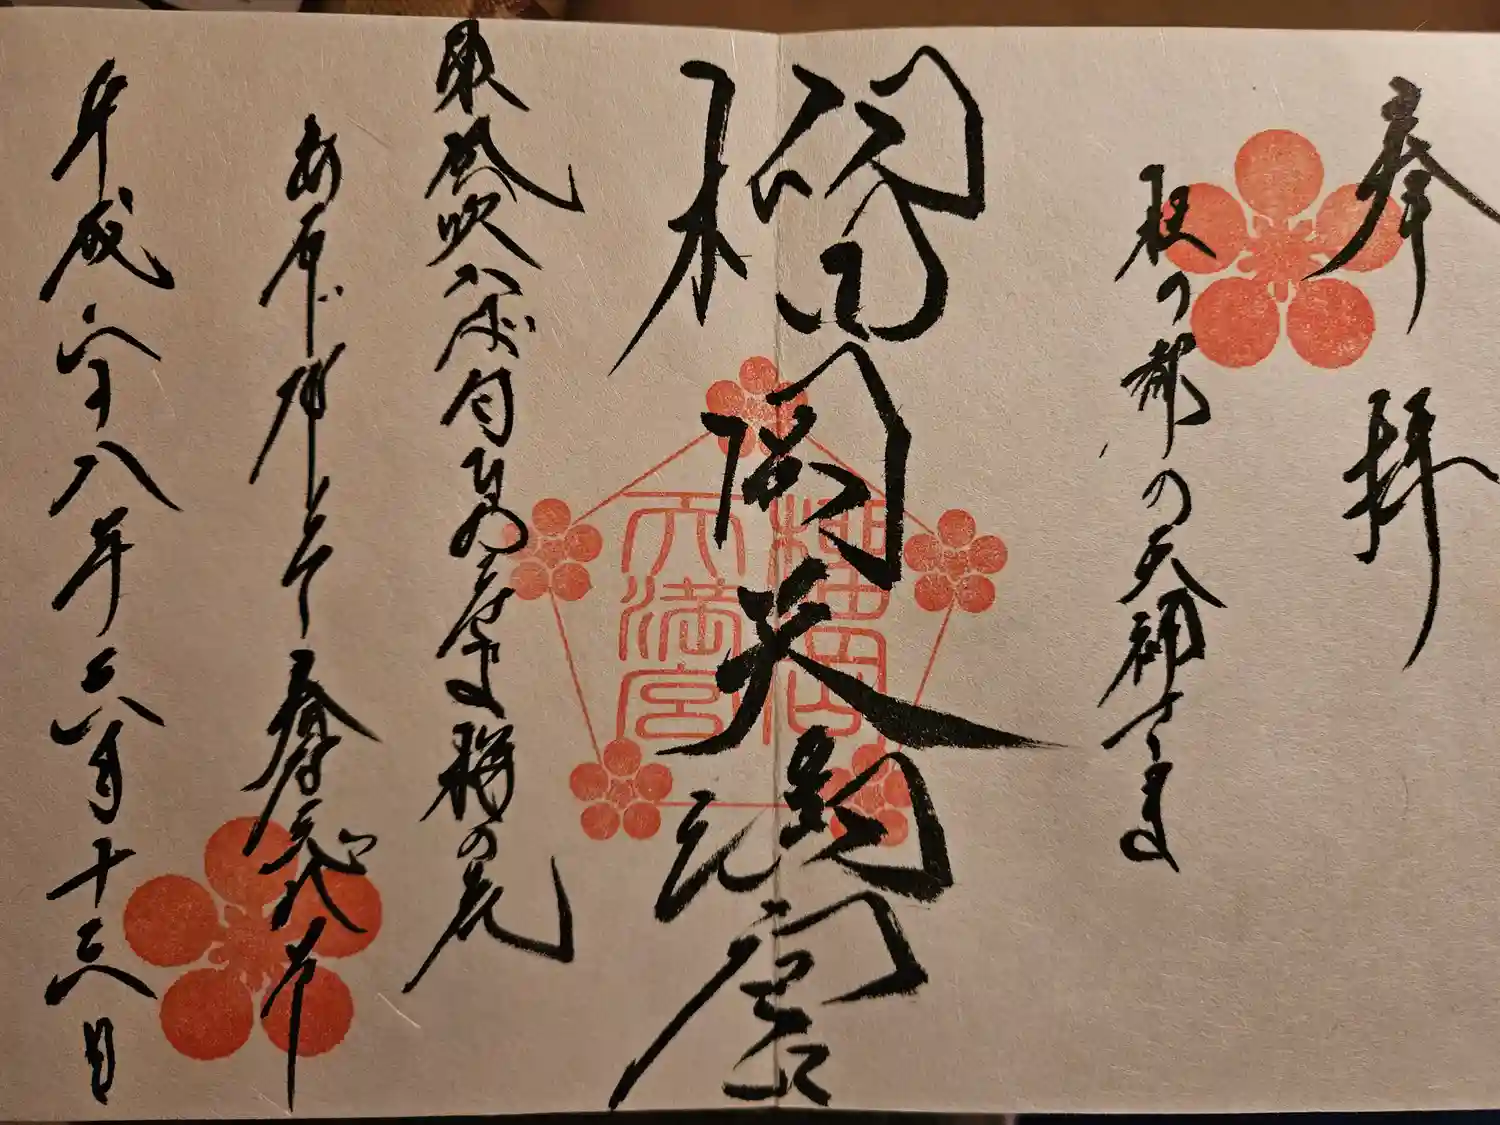 奉拝
杜の都の天神さま
榴岡天満宮
榴岡
天満宮
東風吹かば匂ひおこせよ梅の花
あるじ那しとて春な忘れそ
平成二十八年六月十六日